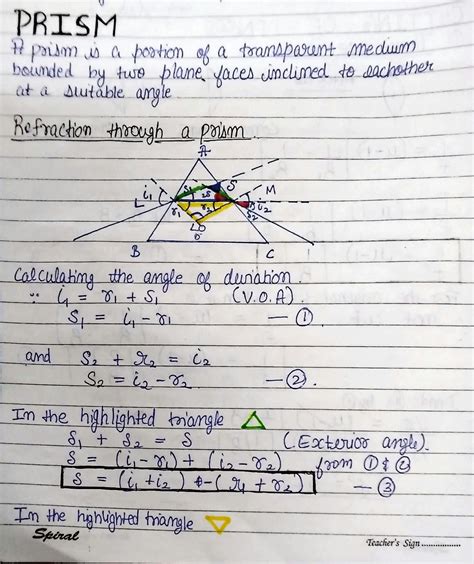 PRISM
A prism is a portion of a transparent medium
bounded by two plane faces inclined to eachother
at a suitable angle
Refraction through a prism.
A
i₁ S₁ S M
r₁ S r₂ S₂ i₂
O
B C
Calculating the angle of duriation.
∵ i₁ = r₁ + S₁ (V.O.A).
S₁ = i₁ - r₁ — ①
and S₂ + r₂ = i₂
S₂ = i₂ - r₂ — ②.
Im the highlighted triangle △
S₁ + S₂ = S (Exterior angle).
S = (i₁ - r₁) + (i₂ - r₂) from ① & ②
S = (i₁ + i₂) - (r₁ + r₂) — ③
Im the highlighted triangle ▽
Spiral
Teacher's Sign ..................